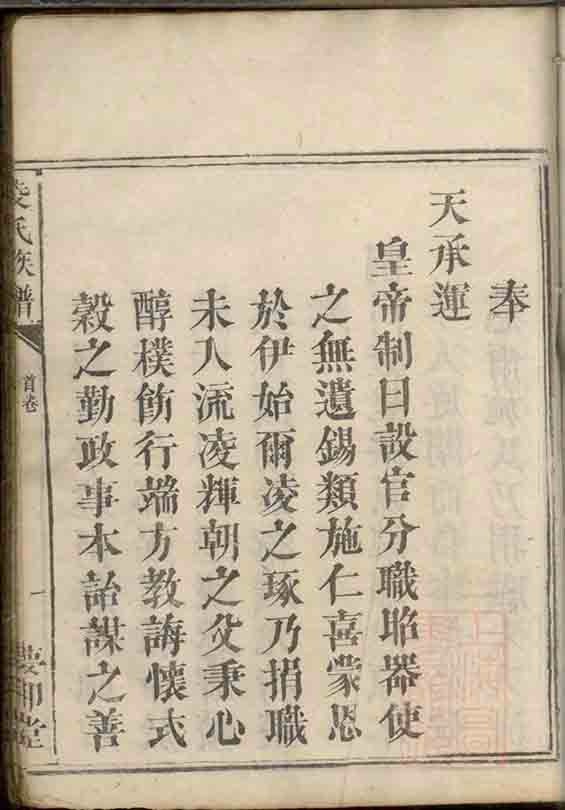 奉
天承運
皇帝制曰設官分職昭器使
之無遺錫類施仁喜蒙恩
於伊始爾凌之琢乃捐職
未入流凌輝朝之父秉心
醇樸飭行端方教誨懷式
穀之勤政事本詒謀之善
凌氏族譜
首卷
一